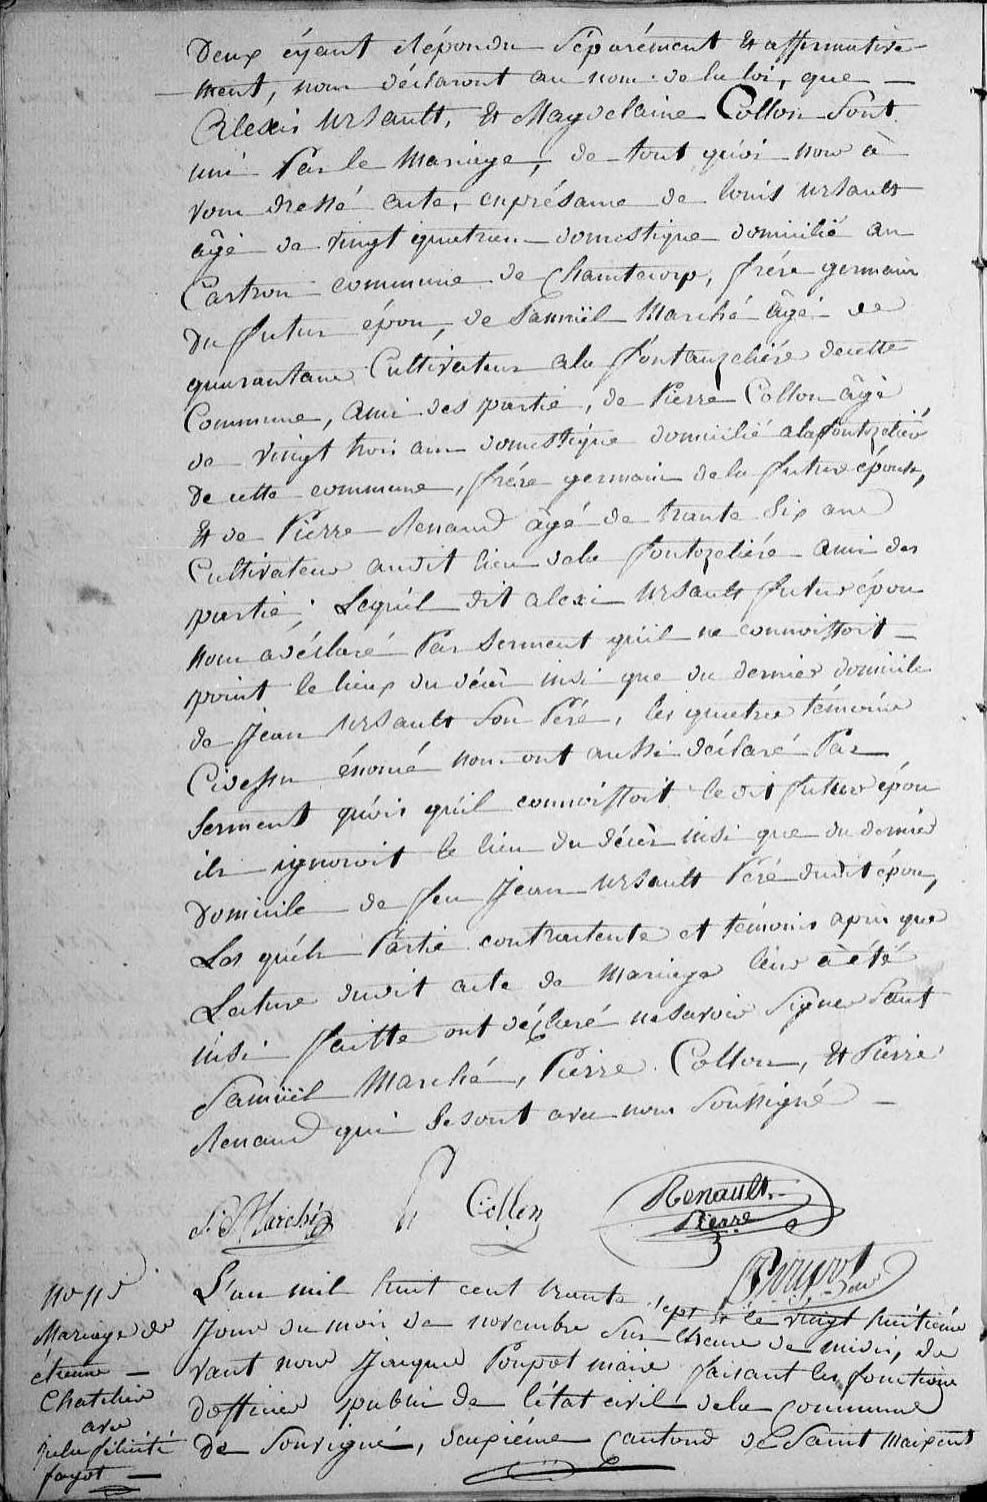 Deux éyant Répondu Séparément & affirmative-
ment, nous déclaront au nom de la loi, que —
Alexis Ursault, & Magdelaine Collon Sont
uni Par le Mariage, de tout quoi nous à
vons dressé acte, enprésance de louis Ursault
âgé de vingt quatre ans domestique domicilié au
Castron commune de Chantecorp, frére germain
du futur épou, de Samuïel Marché âgé de
quarantans Cultivateur ala fontauzeliére decette
Commune, Ami des partie, de Pierre Collon âgé
de vingt trois ans domestique domicilié alafontozeliér
de cette commune, frére germain de la future épouse,
& de Pierre Renaud âgé de trante Six ans
Cultivateur audit lieu dela fontozeliére ami des
partie; Lequél dit alexi Ursault futur épou
nous adéclaré Par Serment quil ne connoissoit —
point le lieux du décè insi que du dernier domicile
de Jean Ursault Son Péré, les quatre témoins
Cidessu énomé nous ont aussi déclaré Par
Serment quoi quil connoissoit le dit futur épou
ils ignoroit le lieu du décèr insi que du dernier
Domicile de feu Jean Ursault Péré dudit épou,
Les quéls Partie contractente et témoins aprés que
Lecture dudit acte de Mariage leur à été
insi faitte ont déclaré nesavoir Signer Sauf
Samuïel Marché, Pierre Collon, & Pierre
Renaud qui Sesont avec nous Soussigné —
S. Marché P Collon Renault
Pierre
Poupot
No 11
L'an mil huit cent trante Sept & le vingt huitiéme
Mariage de
Jour du mois de novembre Sur Lheure de midi, de
étienne —
vant nous Jacque Poupot maire faisant les fonctions
Chatelier
avec
dofficier public de l'état civil dela commune
Julie félicité
de Souvigné, deuxiéme Cantond de Saint Maixent
fayot —